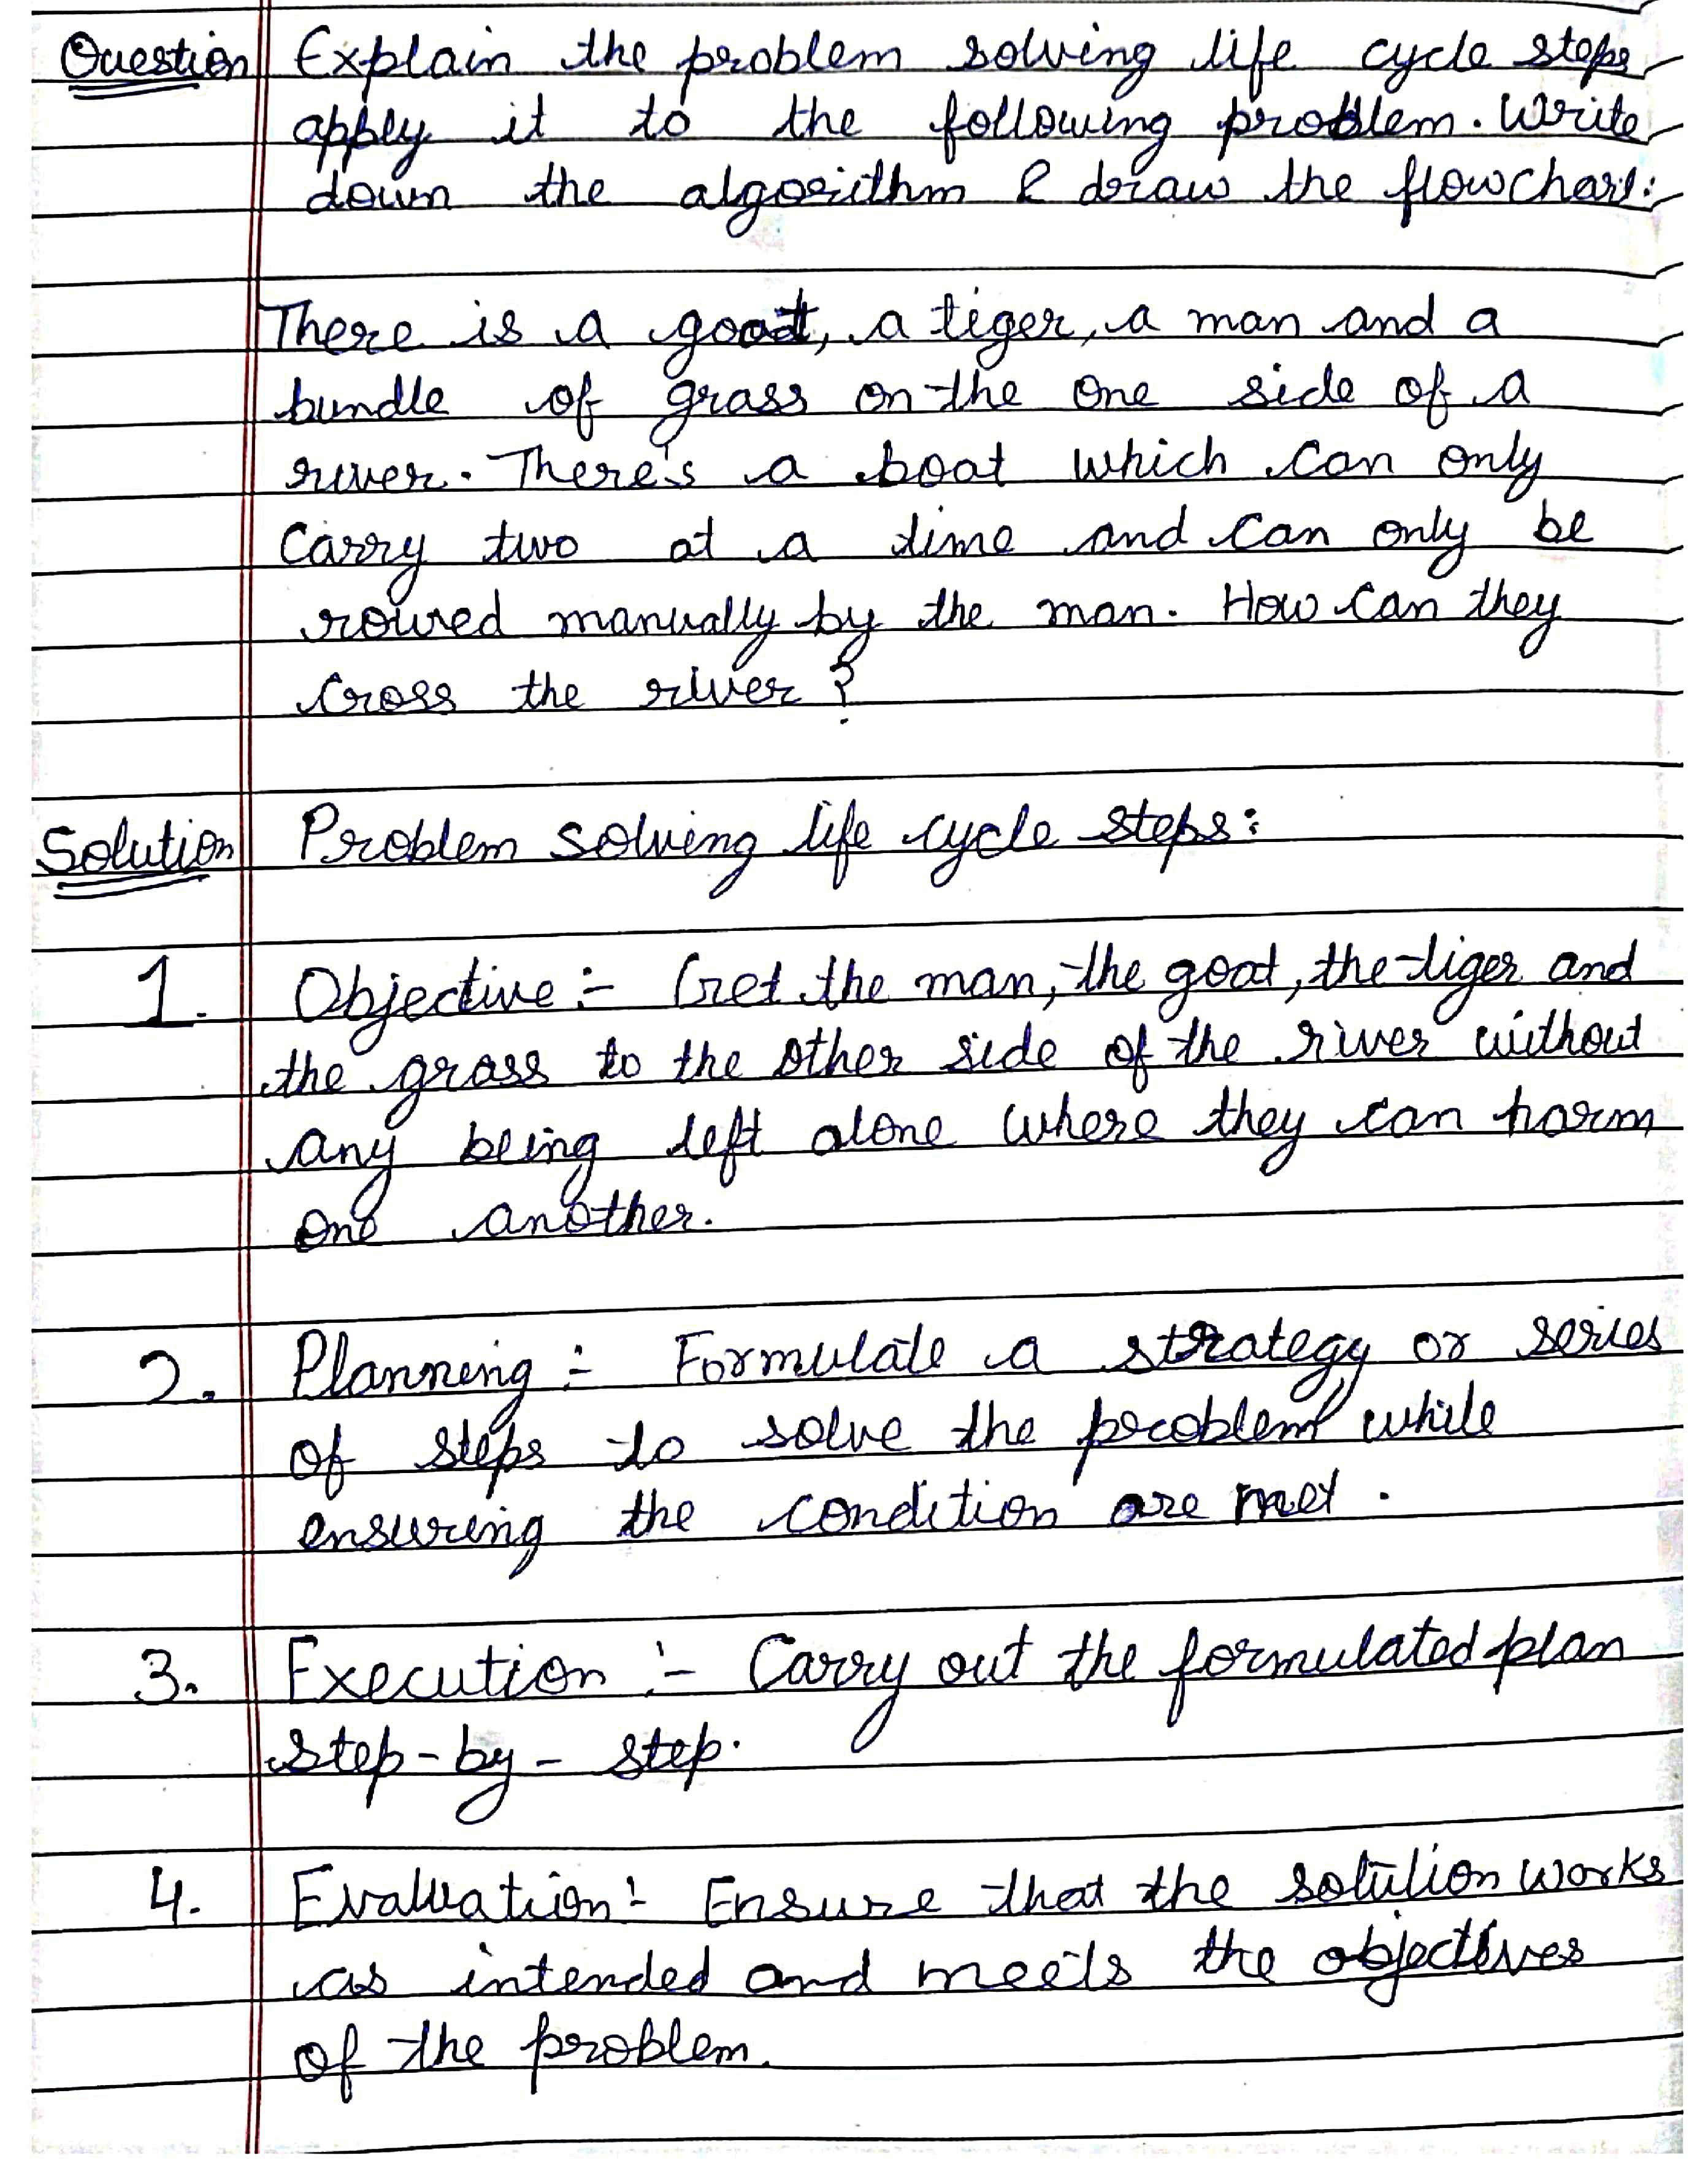 Question Explain the problem solving life cycle steps
apply it to the following problem. Write
down the algorithm & draw the flowchart:
There is a goat, a tiger, a man and a
bundle of grass on the one side of a
river. There's a boat which can only
carry two at a time and can only be
rowed manually by the man. How can they
cross the river?
Solution Problem solving life cycle steps:
1. Objective :- Get the man, the goat, the tiger and
the grass to the other side of the river without
any being left alone where they can harm
one another.
2. Planning :- Formulate a strategy or series
of steps to solve the problem while
ensuring the condition are met.
3. Execution :- Carry out the formulated plan
step-by-step.
4. Evaluation :- Ensure that the solution works
as intended and meets the objectives
of the problem.